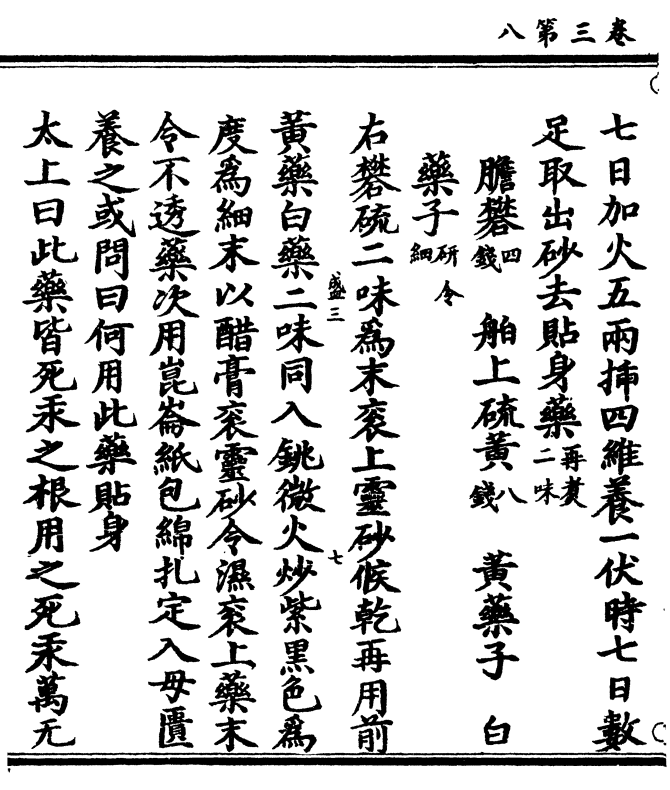 卷三第八
七日加火五兩揷四維養一伏時七日數
足取出砂去貼身藥再煑二味
膽礬四錢 舶上硫黃八錢 黃藥子 白
藥子研令細
右礬硫二味爲末衮上靈砂候乾再用前
盛三 七
黃藥白藥二味同入銚微火炒紫黑色爲
度爲細末以醋膏衮靈砂令濕衮上藥末
令不透藥次用崑崙紙包綿扎定入母匱
養之或問曰何用此藥貼身
太上曰此藥皆死汞之根用之死汞萬无